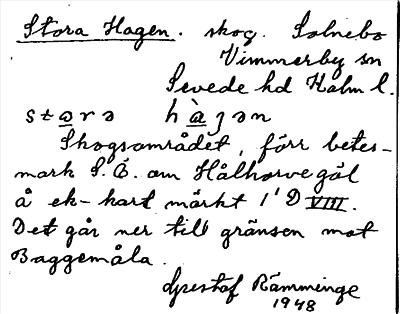 Stora Hagen. skog. Solnebo
Vimmerby sn
Sevede hd Kalm l.
Skogsområdet, förr betes-
mark S.Ö. om Hålhorvegöl
å ek-kart märkt 1'D VIII.
Det går ner till gränsen mot
Baggemåla.
Gustaf Rämminge
1948